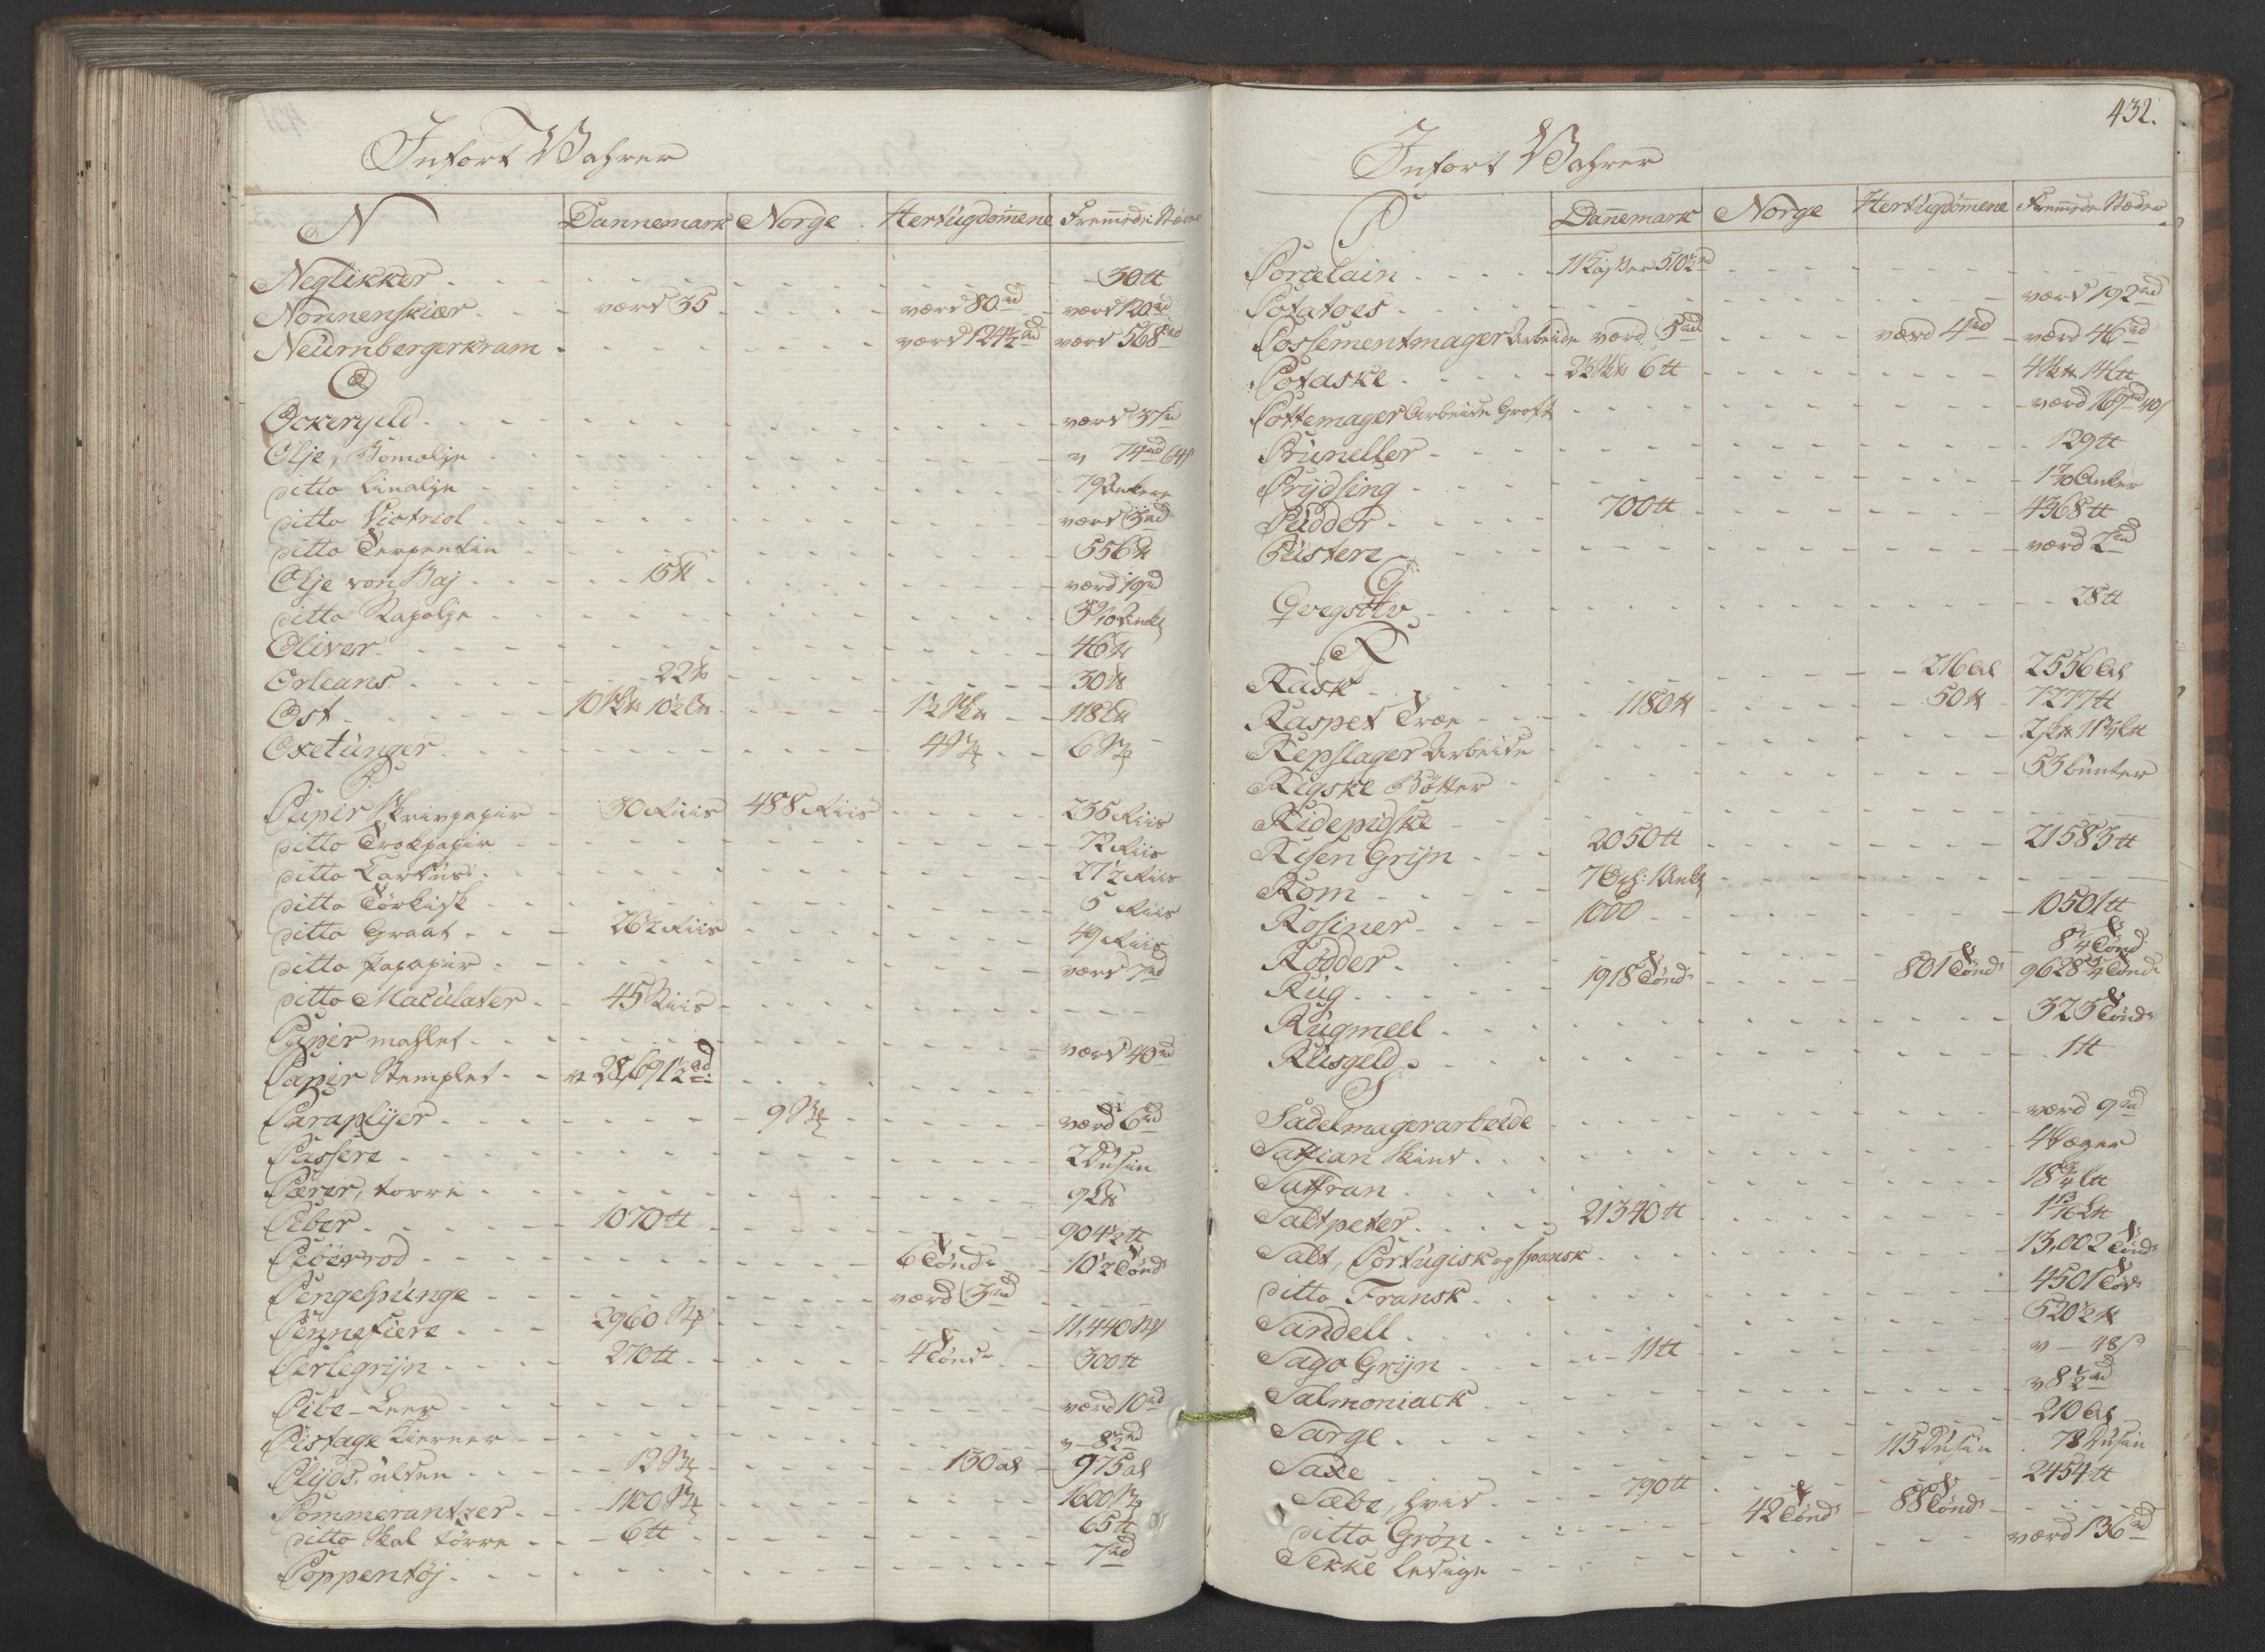 Infort Vahrer
N Dannemark Norge Hertugdømmene Fremmede Stæder
Neglikker 30 ℔
Nonnenskiær værd 35 værd 80 rd værd 120 rd
Neurnbergerkram værd 124½ rd værd 568 rd
O
Ockergeld værd 37 rd
Olje, Bomolje v 74 rd 64 s
ditto Linolje 79 Ankere
ditto Victriol værd 3 rd
ditto Terpentin 556 ℔
Olje von Baj 15 ℔ værd 19 rd
ditto Rapolje
Oliver 46 ℔
Orleans 22 ℔ 30 ℔
Ost 118
Oxetunger 4 Stk 6 Stk
P
Papir Skrivpapir 30 Riis 488 Riis 235 Riis
ditto Trokpapir 72 Riis
ditto Cardus 27½ Riis
ditto Törkisk 5 Riis
ditto Graat 26½ Riis 49 Riis
ditto værd 7 rd
ditto Maculater 45 Riis
Papir mahlet værd 40 rd
Papir Stemplet v 28,691½ rd
Paraplyer 9 Stk værd 6 rd
Passere 2 Dusin
Pærer, torre
Peber 1070 ℔ 904½ ℔
Peberrod 6 Tönd 10½ Tönd
Pengepunge værd 3 rd
Pennefiere 2960 Stk 11,440 Stk
Perlegryn 270 ℔ 4 Tönd 300 ℔
Pibe-Leer værd 10 rd
Pistage Kierner v 8½ rd
Plyds, ulden 12 Stk 130 al 975 al
Pommerantzer 1100 Stk 1600 Stk
ditto Skal törre 6 ℔ 65 ℔
Poppentöj 7 rd
432.
Infort Vahrer
P Dannemark Norge Hertugdømmene Fremmede Stæder
Porcelain 510½ rd
Potatoes værd 192 rd
Possementmager Arbeide værd 5 rd værd 4 rd værd 46 rd
Potaske 6 ℔
Pottemager Arbeide Groft
Pruneller 129 ℔
Prydsing Anker
Pudder 700 ℔ 4368 ℔
Pustere værd 2 rd
Q
Qvegsölv 28 ℔
R
Rask 216 al 2556 al
Raspet Træe 1180 ℔ 50 ℔ 7277 ℔
Repslager Arbeide
Rigske Bötter 53 bunter
Ridepidske
Risen Gryn 2050 ℔ 21583 ℔
Rom
Rosiner 1000 10501 ℔
Rödder 8¼ Tönd
Rug 1918 Tönd 801 Tönd 9628¾ Tönd
Rugmeel 323 Tönd
Rusgeld 1 ℔
S
Sadelmagerarbeide værd 9 rd
Saffian Skind
Saffran
Saltpeter 21340 ℔
Salt, Portugisk og Spansk 13,002 Tönd
ditto Fransk 4501 Tönd
Sandell 520½ ℔
Sago Gryn 11 ℔ v 48 s
Salmoniack v 8½ rd
Sarge 210 al
Saxe 115 Dusin 78 Dusin
Sæbe, hvid 790 ℔ 2454 ℔
ditto Grön 42 Tönd 88 Tönd
Sekke ledige værd 136 rd